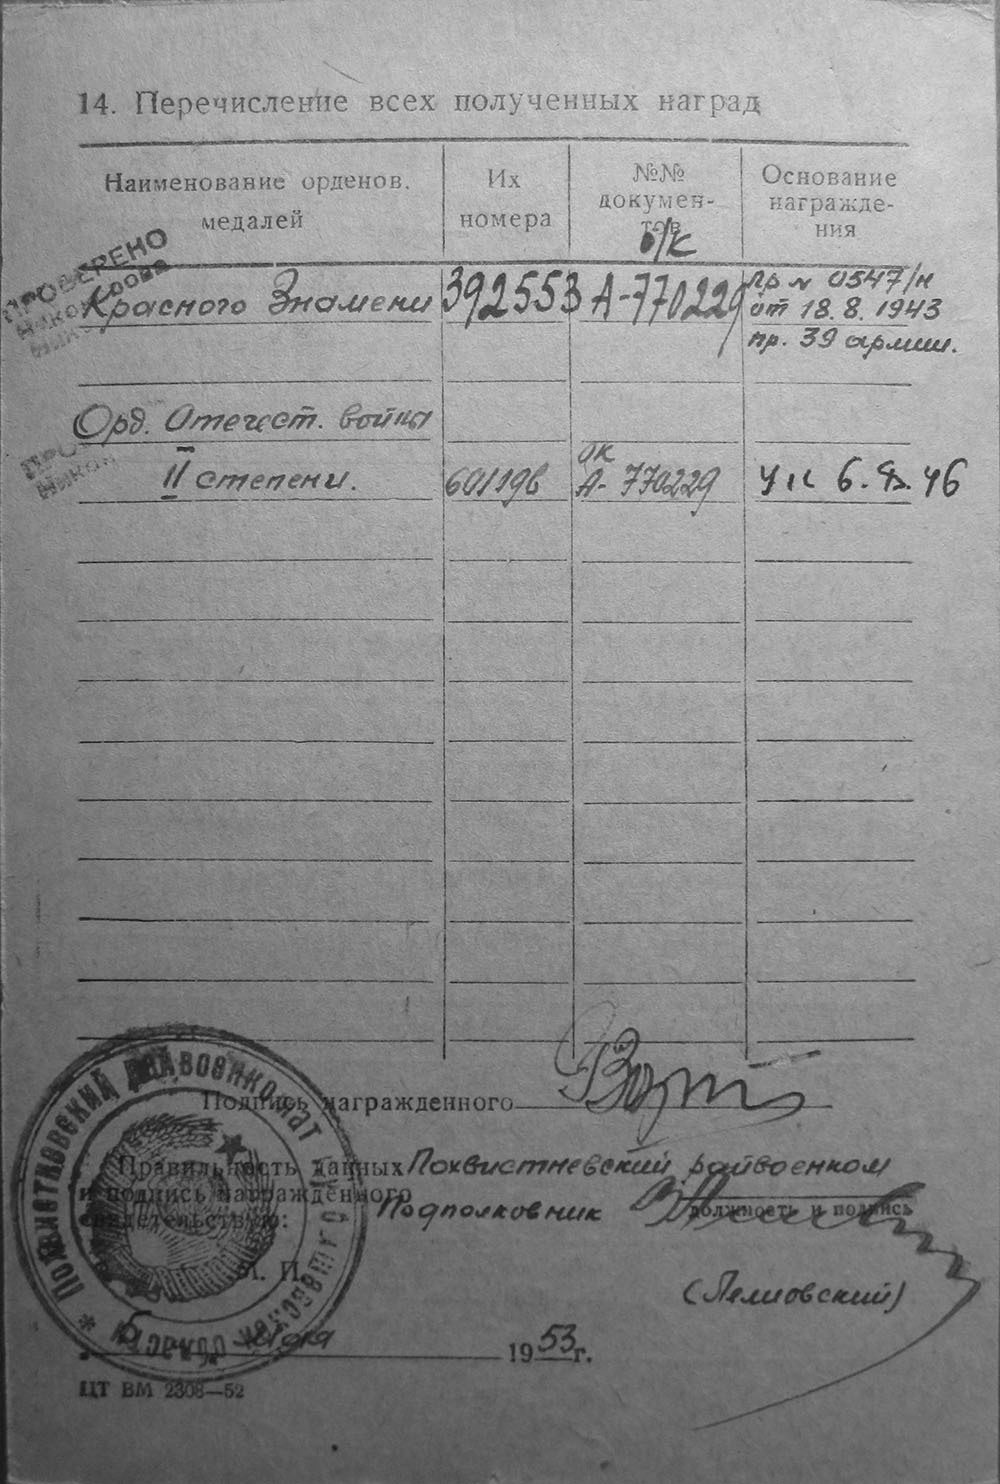 14. Перечисление всех полученных наград
Наименование орденов,
медалей
Их
номера
№№
докумен-
тов
о/к
Основание
награжде-
ния
ПРОВЕРЕНО
Красного Знамени
392553
А-770229
пр № 0547/н
от 18.8.1943
пр. 39 армии.
Орд. Отечест. войны
II степени.
601196
ок
А-770229
Ук 6.
46
Подпись награжденного
Правильность данных
и подпись награжденного
свидетельствую:
Похвистневский райвоенком
Подполковник
должность и подпись
М. П.
1953 г.
ЦТ ВМ 2308—52
ПОХВИСТНЕВСКИЙ РАЙВОЕНКОМАТ КУЙБЫШЕВСКОЙ ОБЛАСТИ